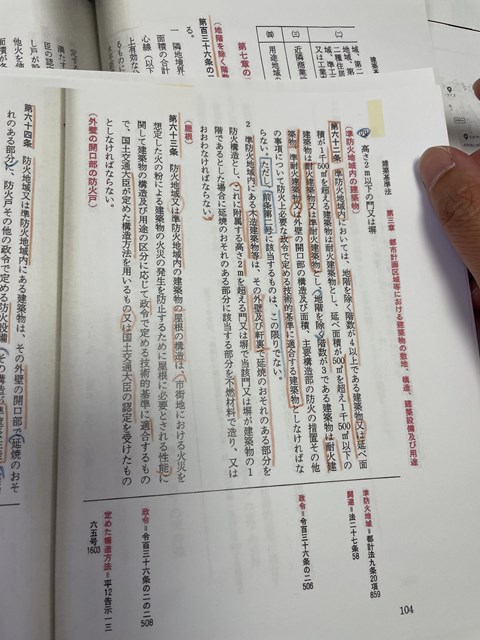 建築基準法 第三章 都市計画区域等における建築物の敷地、構造、建築設備及び用途
高さ2m以下の門又は塀
(準防火地域内の建築物)
第六十二条 準防火地域内においては、地階を除く階数が4以上である建築物又は延べ面
積が1千500㎡を超える建築物は耐火建築物とし、延べ面積が500㎡を超え1千500㎡以下の
建築物は耐火建築物又は準耐火建築物とし、地階を除く階数が3である建築物は耐火建
築物、準耐火建築物又は外壁の開口部の構造及び面積、主要構造部の防火の措置その他
の事項について防火上必要な政令で定める技術的基準に適合する建築物としなければな
らない。ただし、前条第二号に該当するものは、この限りでない。
2 準防火地域内にある木造建築物等は、その外壁及び軒裏で延焼のおそれのある部分を
防火構造とし、これに附属する高さ2mを超える門又は塀で当該門又は塀が建築物の1
階であるとした場合に延焼のおそれのある部分に該当する部分を不燃材料で造り、又は
おおわなければならない。
(屋根)
第六十三条 防火地域又は準防火地域内の建築物の屋根の構造は、市街地における火災を
想定した火の粉による建築物の火災の発生を防止するために屋根に必要とされる性能に
関して建築物の構造及び用途の区分に応じて政令で定める技術的基準に適合するもの
で、国土交通大臣が定めた構造方法を用いるもの又は国土交通大臣の認定を受けたもの
としなければならない。
(外壁の開口部の防火戸)
第六十四条 防火地域又は準防火地域内にある建築物は、その外壁の開口部で延焼のおそ
れのある部分に、防火戸その他の政令で定める防火設備
準防火地域=都計法九条20項
859
関連=法二十七条58
政令=令百三十六条の二506
政令=令百三十六条の二の二508
定めた構造方法=平12告示一三
六五号1603
104
第七章の
(地階を除く階数
第百三十六条の二
る。
一 隣地境界
面積の合計
心線(以下
用途地域の
近隣商業